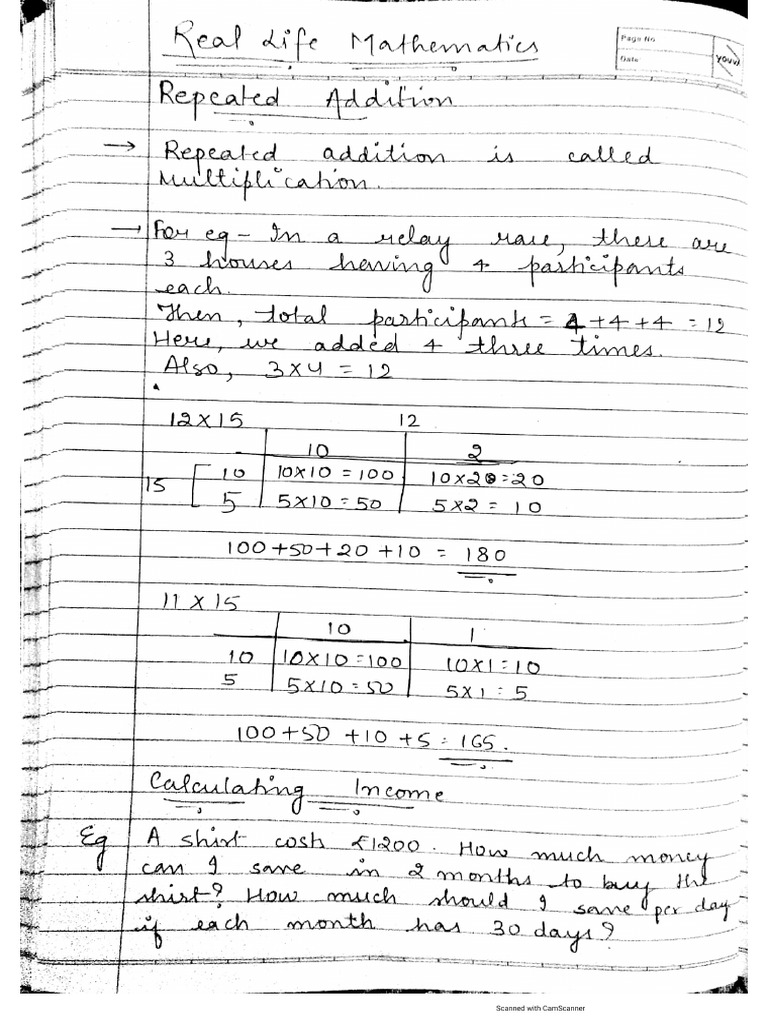 Real Life Mathematics
Page No
Date
youva
Repeated Addition
→ Repeated addition is called
Multiplication.
→ For eg - In a relay race, there are
3 houses having 4 participants
each.
Then, total participants = 4+4+4 = 12
Here, we added 4 three times.
Also, 3×4 = 12
12×15 12
10 2
15 10 10×10 = 100 10×20=20
5 5×10 = 50 5×2 = 10
100+50+20+10 = 180
11 × 15
10 1
10 10×10=100 10×1=10
5 5×10=50 5×1=5
100+50+10+5=165.
Calculating Income
Eg A shirt costs ₹1200. How much money
can I save in 2 months to buy the
shirt? How much should I save per day
if each month has 30 days?
Scanned with CamScanner